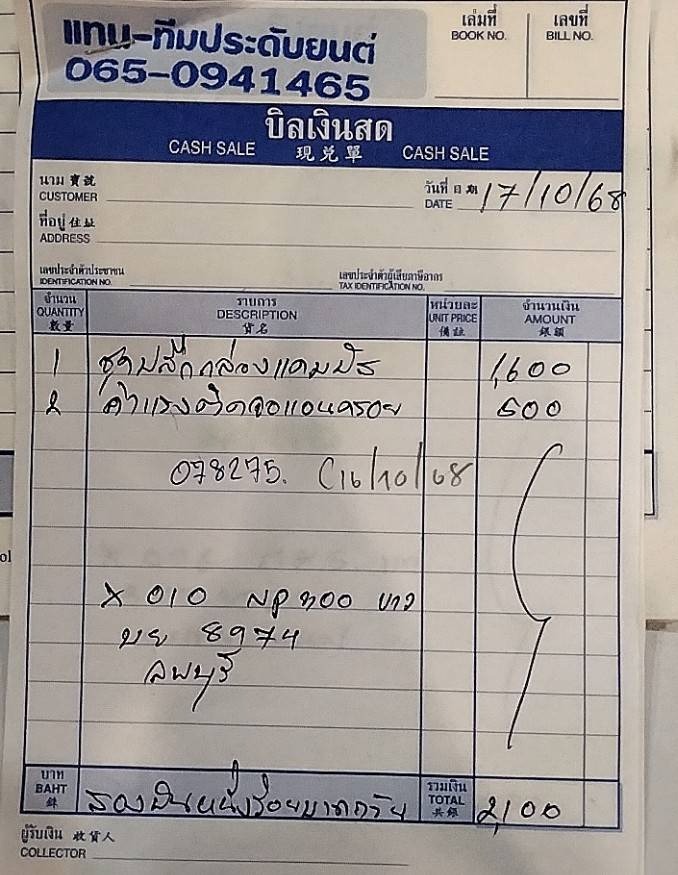 แทน-ทีมประดับยนต์
065-0941465
เล่มที่
BOOK NO.
เลขที่
BILL NO.
บิลเงินสด
CASH SALE 現兌單 CASH SALE
นาม 寶號
CUSTOMER
วันที่ 日期
DATE 17/10/68
ที่อยู่ 住址
ADDRESS
เลขประจำตัวประชาชน
IDENTIFICATION NO.
เลขประจำตัวผู้เสียภาษีอากร
TAX IDENTIFICATION NO.
จำนวน
QUANTITY
數量
รายการ
DESCRIPTION
貨名
หน่วยละ
UNIT PRICE
備註
จำนวนเงิน
AMOUNT
銀額
1 ชุดปลั๊กกล่องแคมบัส 1,600
2 ค่าแรงติดจอแอนดรอย 500
078275. (16/10/68
X 010 NP 300 บาท
บย 8974
ลพบุรี
บาท
BAHT
銖
สองพันหนึ่งร้อยบาทถ้วน
รวมเงิน
TOTAL
共銀
2,100
ผู้รับเงิน 收貨人
COLLECTOR